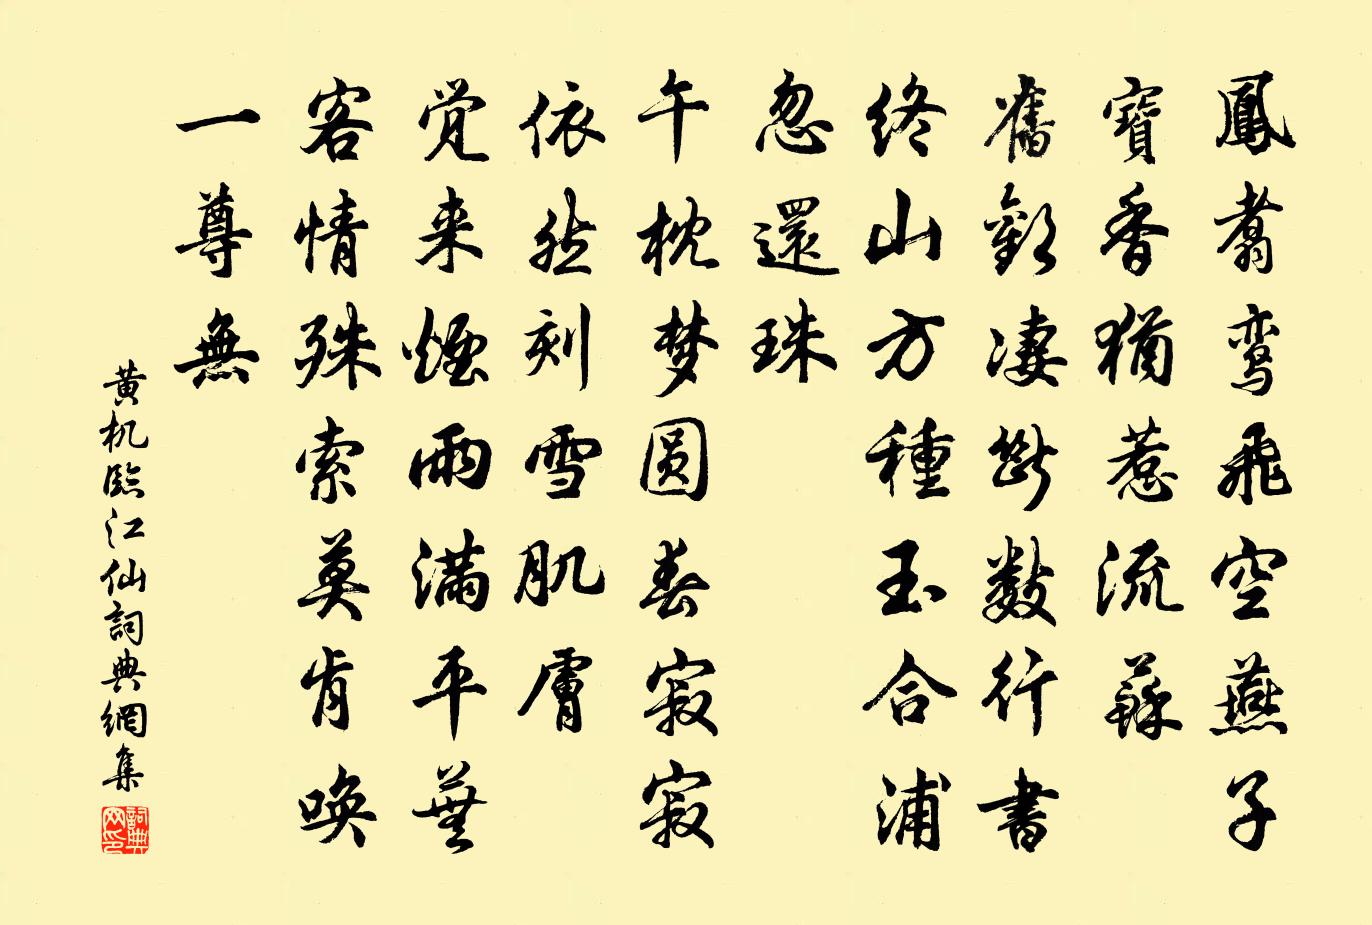 鳳翥鸾飛空燕子
寶香猶惹流蘇
舊歡凄斷數行書
终山方種玉合浦
忽還珠
午枕梦圆春寂寂
依然刻雪肌膚
觉来煙雨满平蕪
客情殊索莫肯唤
一尊無
黄机臨江仙詞典網集
詞典网印